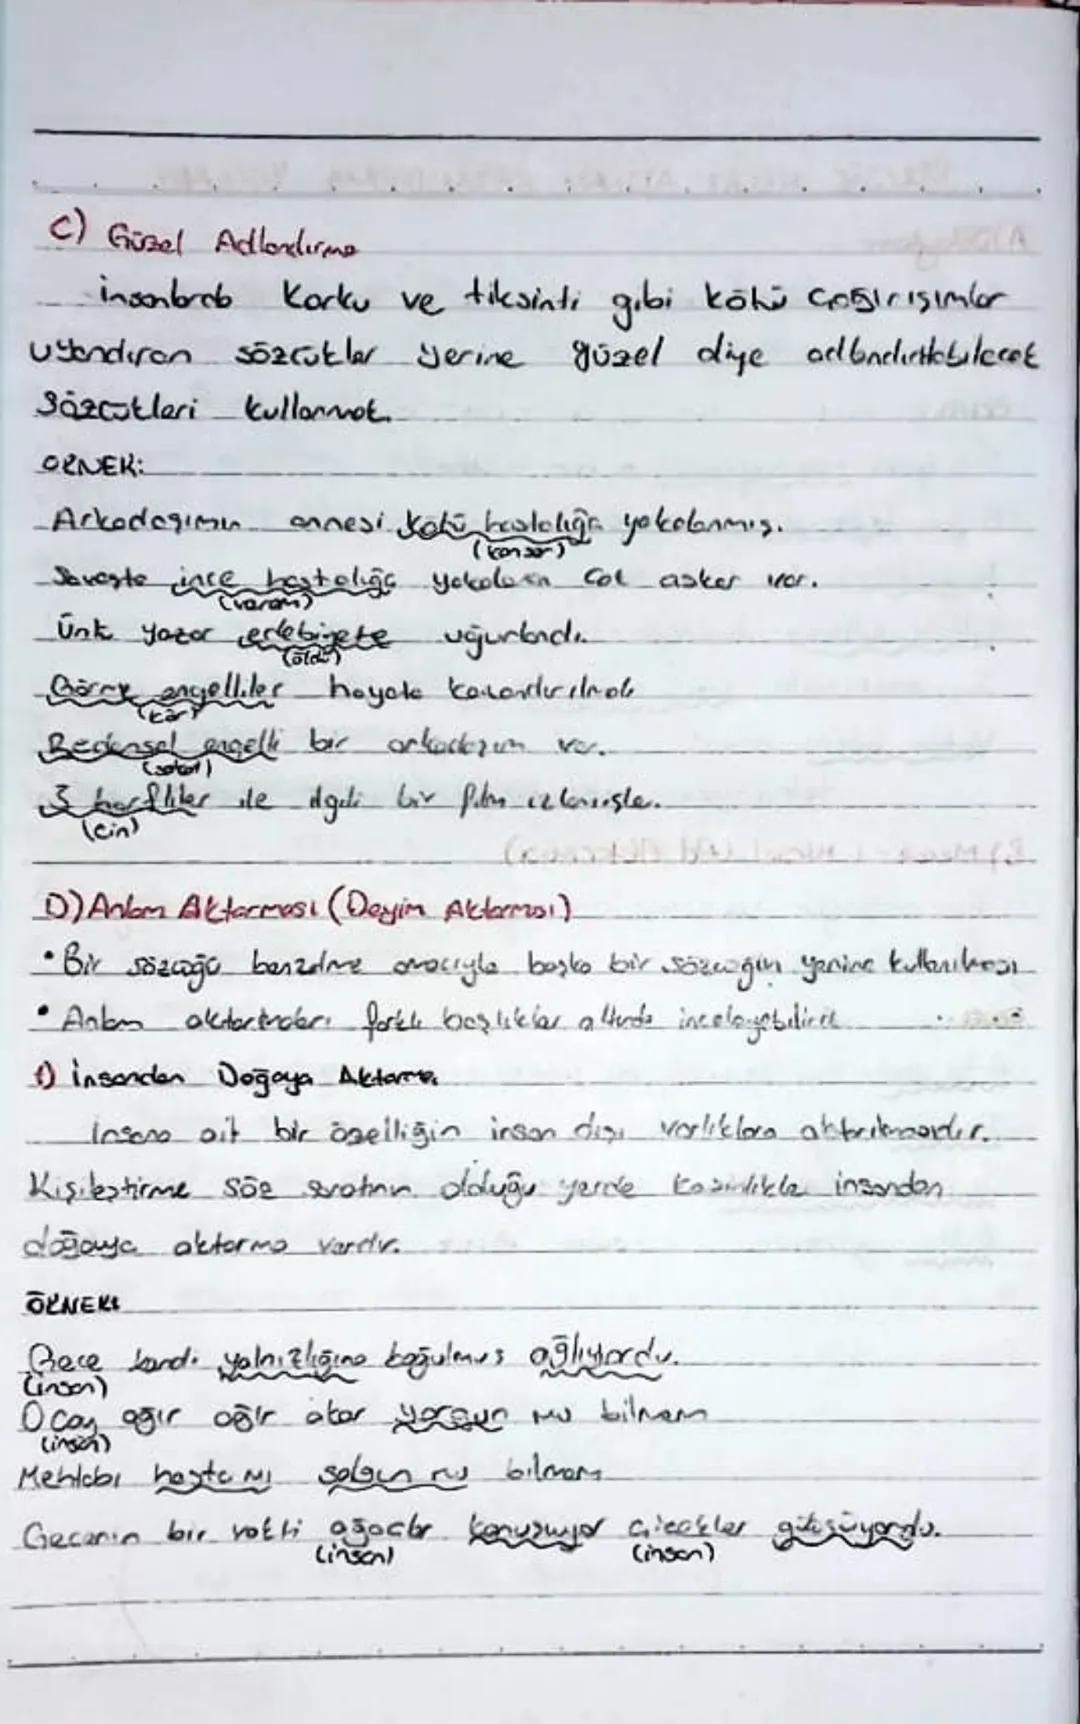 C) Güzel Adlandırma
İnsanlarda korku ve tiksinti gibi kötü çağırışımlar
uyandıran sözcükler yerine güzel diye adlandırılabilecek
sözcükleri kullanmak.
ÖRNEK:
Arkadaşımın annesi kötü hastalığa yakalanmış.
(kanser)
Savaşta ince hastalığa yakalanan çok asker var.
(verem)
Ünlü yazar edebiyete uğurlandı.
(öldü)
Görme engelliler hayata kazandırılmalı
(kör)
Bedensel engelli bir arkadaşım var.
(sakat)
3 harfliler ile ilgili bir film izlemişler.
(cin)
D) Anlam Aktarması (Deyim Aktarması)
• Bir sözcüğü benzetme amacıyla başka bir sözcüğün yerine kullanılması
• Anlam aktarımları farklı başlıklar altında inceleyebiliriz
1) İnsandan Doğaya Aktarma
İnsana ait bir özelliğin insan dışı varlıklara aktarılmasıdır.
Kişileştirme söz sanatının olduğu yerde kesinlikle insandan
doğaya aktarma vardır.
ÖRNEK:
Gece kendi yalnızlığına boğulmuş ağlıyordu.
(insan)
O çay ağır ağır akar yorgun mu bilmem
(insan)
Mehtabı hasta mı solgun mu bilmem
Gecenin bir vakti ağaçlar konuşuyor çiçekler gülüşüyordu.
(insan) (insan)